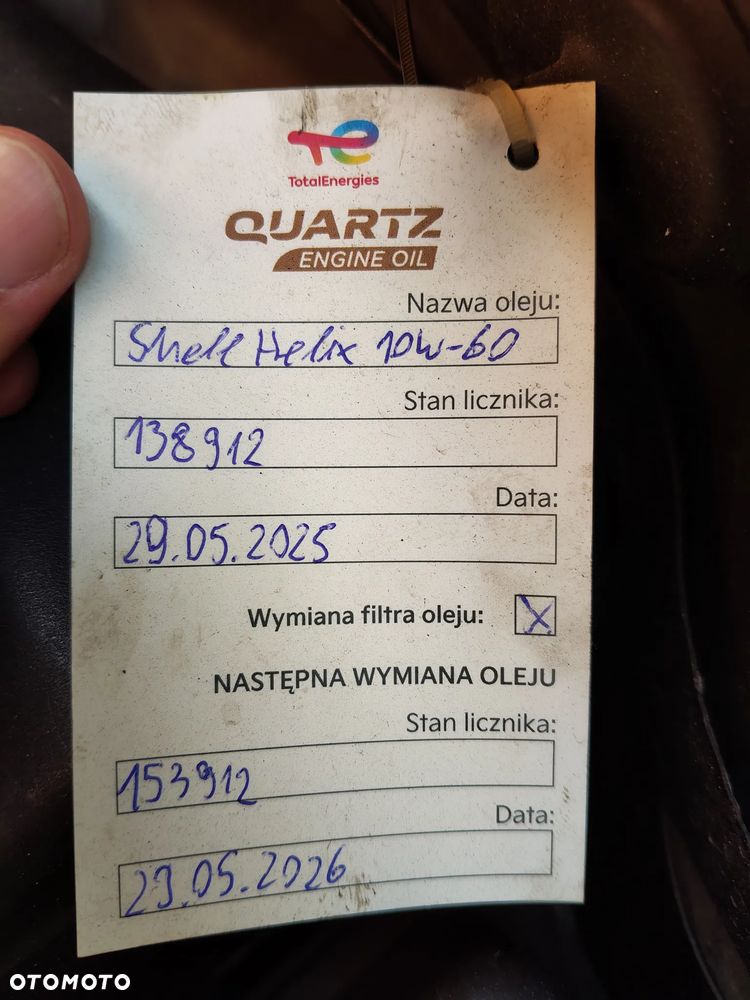 TotalEnergies
QUARTZ
ENGINE OIL
Nazwa oleju:
Shell Helix 10W-60
Stan licznika:
138912
Data:
29.05.2025
Wymiana filtra oleju: X
NASTĘPNA WYMIANA OLEJU
Stan licznika:
153912
Data:
29.05.2026
OTOMOTO